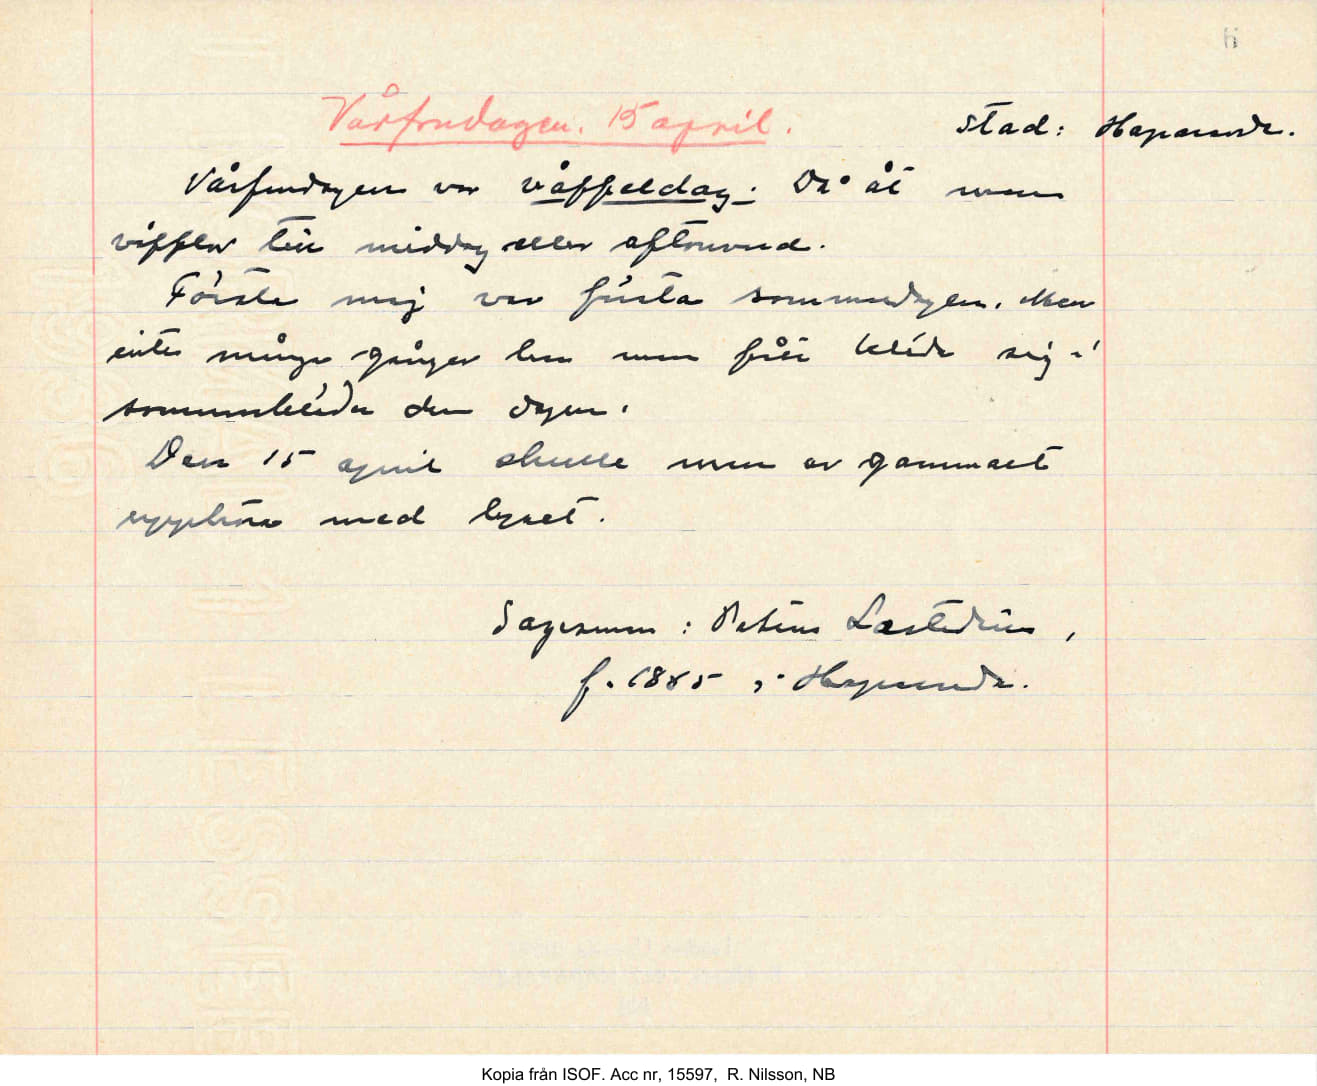 Vårfrudagen. 15 april.
Stad: Haparanda.
Vårfrudagen var våffeldag. Då åt man
våfflor till middag eller aftonvard.
Första maj var första sommardagen. Men
inte många gånger har man fått kläda sig i
sommarkläder den dagen.
Den 15 april skulle man av gammalt
upphöra med lyset.
Sagesman: Petrus Læstadius,
f. 1865 i Haparanda.
Kopia från ISOF. Acc nr, 15597, R. Nilsson, NB